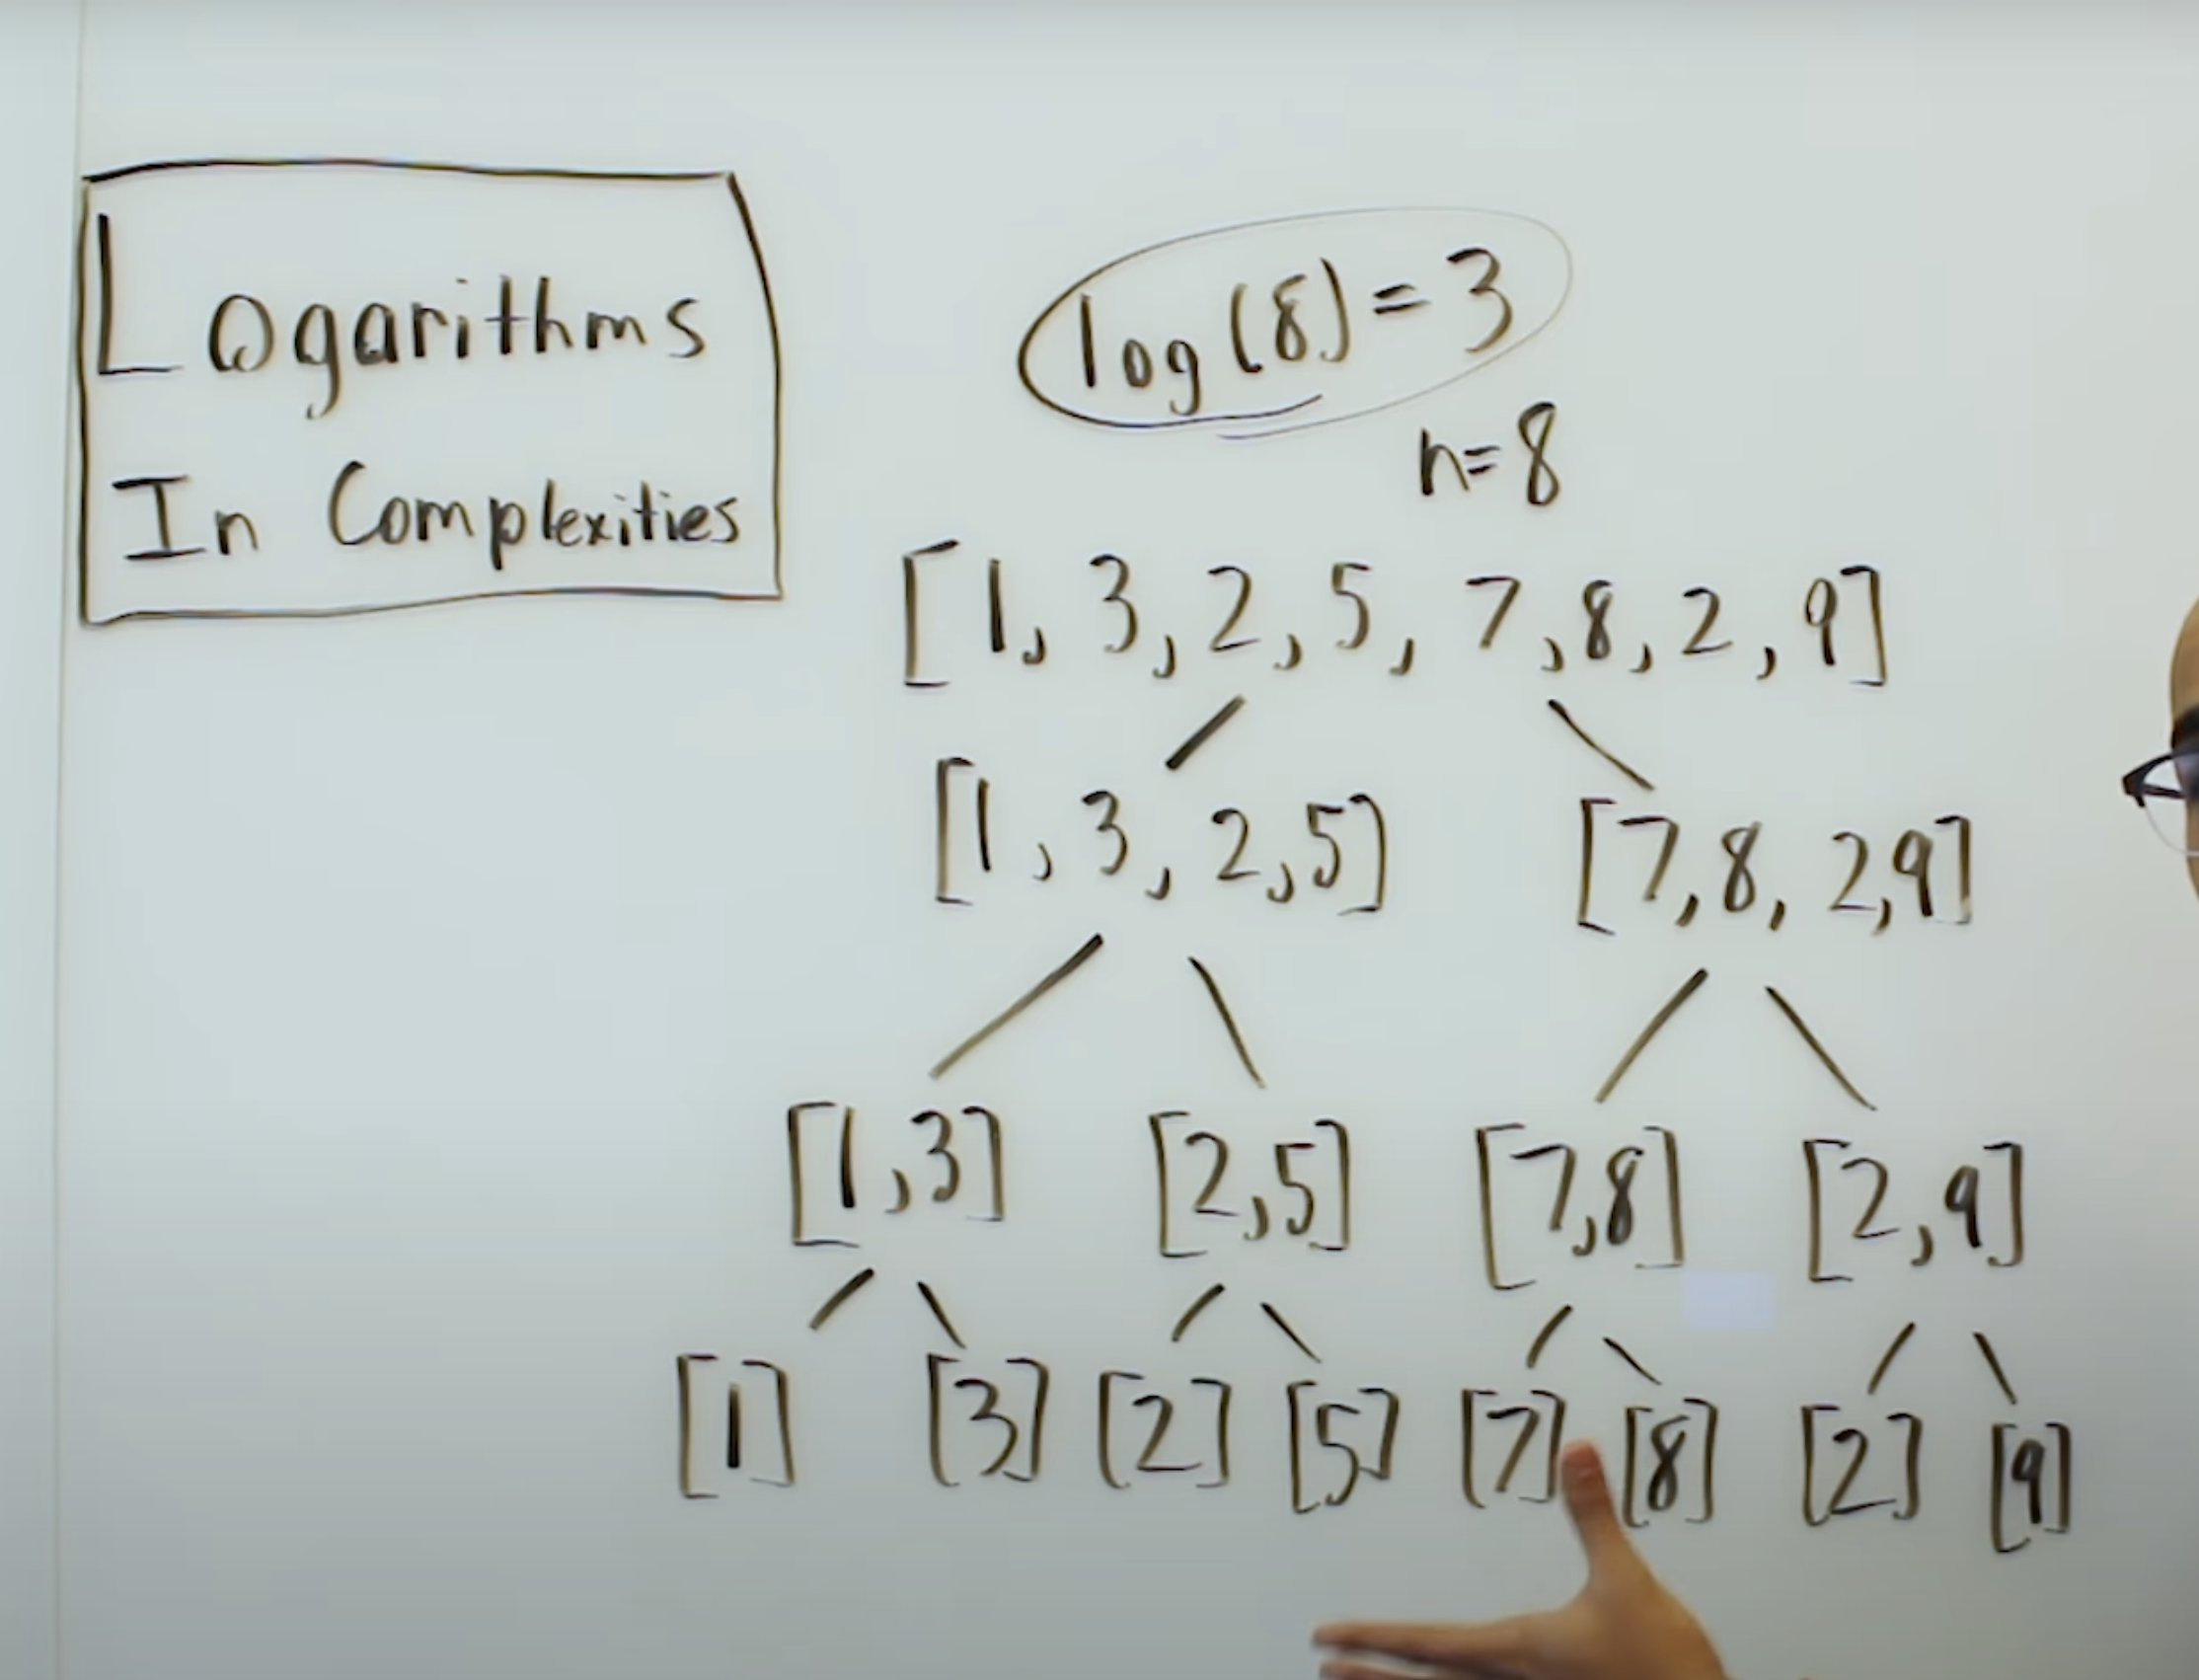 Logarithms
In Complexities
log(8)=3
n=8
[1, 3, 2, 5, 7, 8, 2, 9]
[1, 3, 2, 5] [7, 8, 2, 9]
[1, 3] [2, 5] [7, 8] [2, 9]
[1] [3] [2] [5] [7] [8] [2] [9]